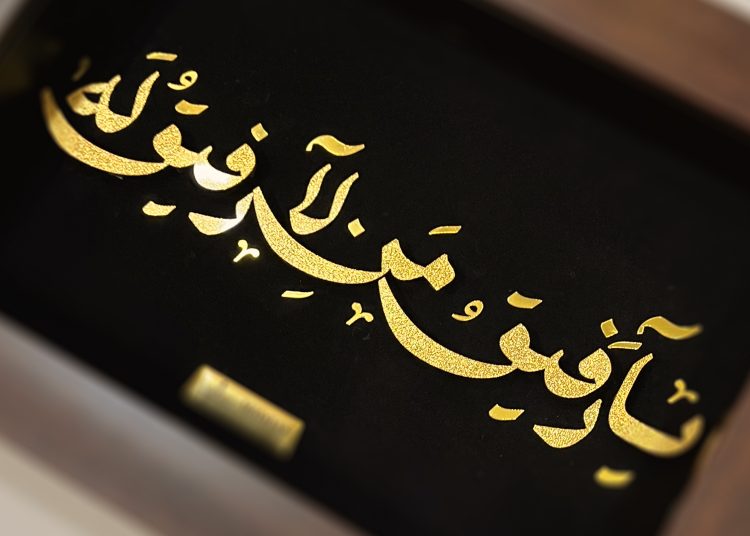 یا رَفیقُ مَن لا رَفیقُ لَهُ